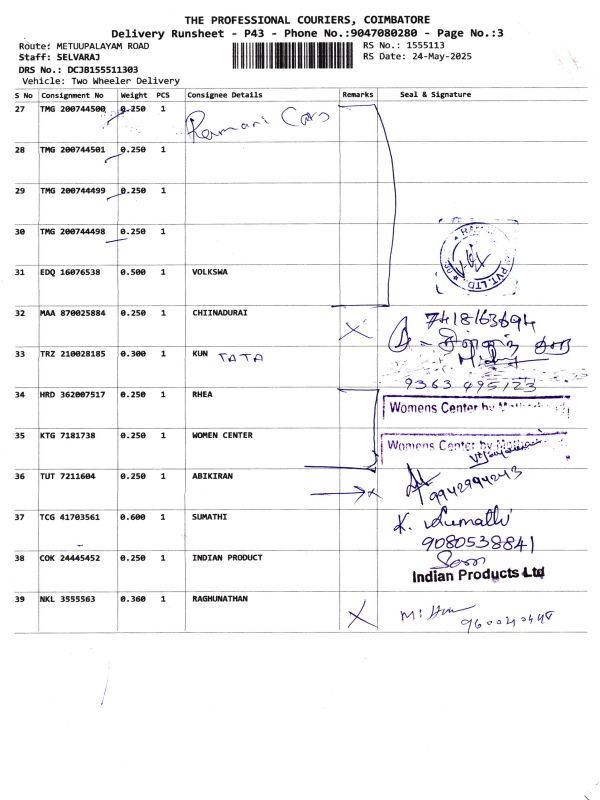 THE PROFESSIONAL COURIERS, COIMBATORE
Delivery Runsheet - P43 - Phone No.:9047080280 - Page No.:3
Route: METUUPALAYAM ROAD RS No.: 1555113
Staff: SELVARAJ RS Date: 24-May-2025
DRS No.: DCJB155511303
Vehicle: Two Wheeler Delivery
S No Consignment No Weight PCS Consignee Details Remarks Seal & Signature
27 TMG 200744500 0.250 1 Ramani Cars
28 TMG 200744501 0.250 1
29 TMG 200744499 0.250 1
30 TMG 200744498 0.250 1
PVT. LTD
31 EDQ 16076538 0.500 1 VOLKSWA
32 MAA 870025884 0.250 1 CHIINADURAI X 7418163694
33 TRZ 210028185 0.300 1 KUN TATA
9363 495123
34 HRD 362007517 0.250 1 RHEA Womens Center by
35 KTG 7181738 0.250 1 WOMEN CENTER Womens Center by
36 TUT 7211604 0.250 1 ABIKIRAN x 9942994243
37 TCG 41703561 0.600 1 SUMATHI K. Sumathi
9080538841
38 COK 24445452 0.250 1 INDIAN PRODUCT Indian Products Ltd
39 NKL 3555563 0.360 1 RAGHUNATHAN X